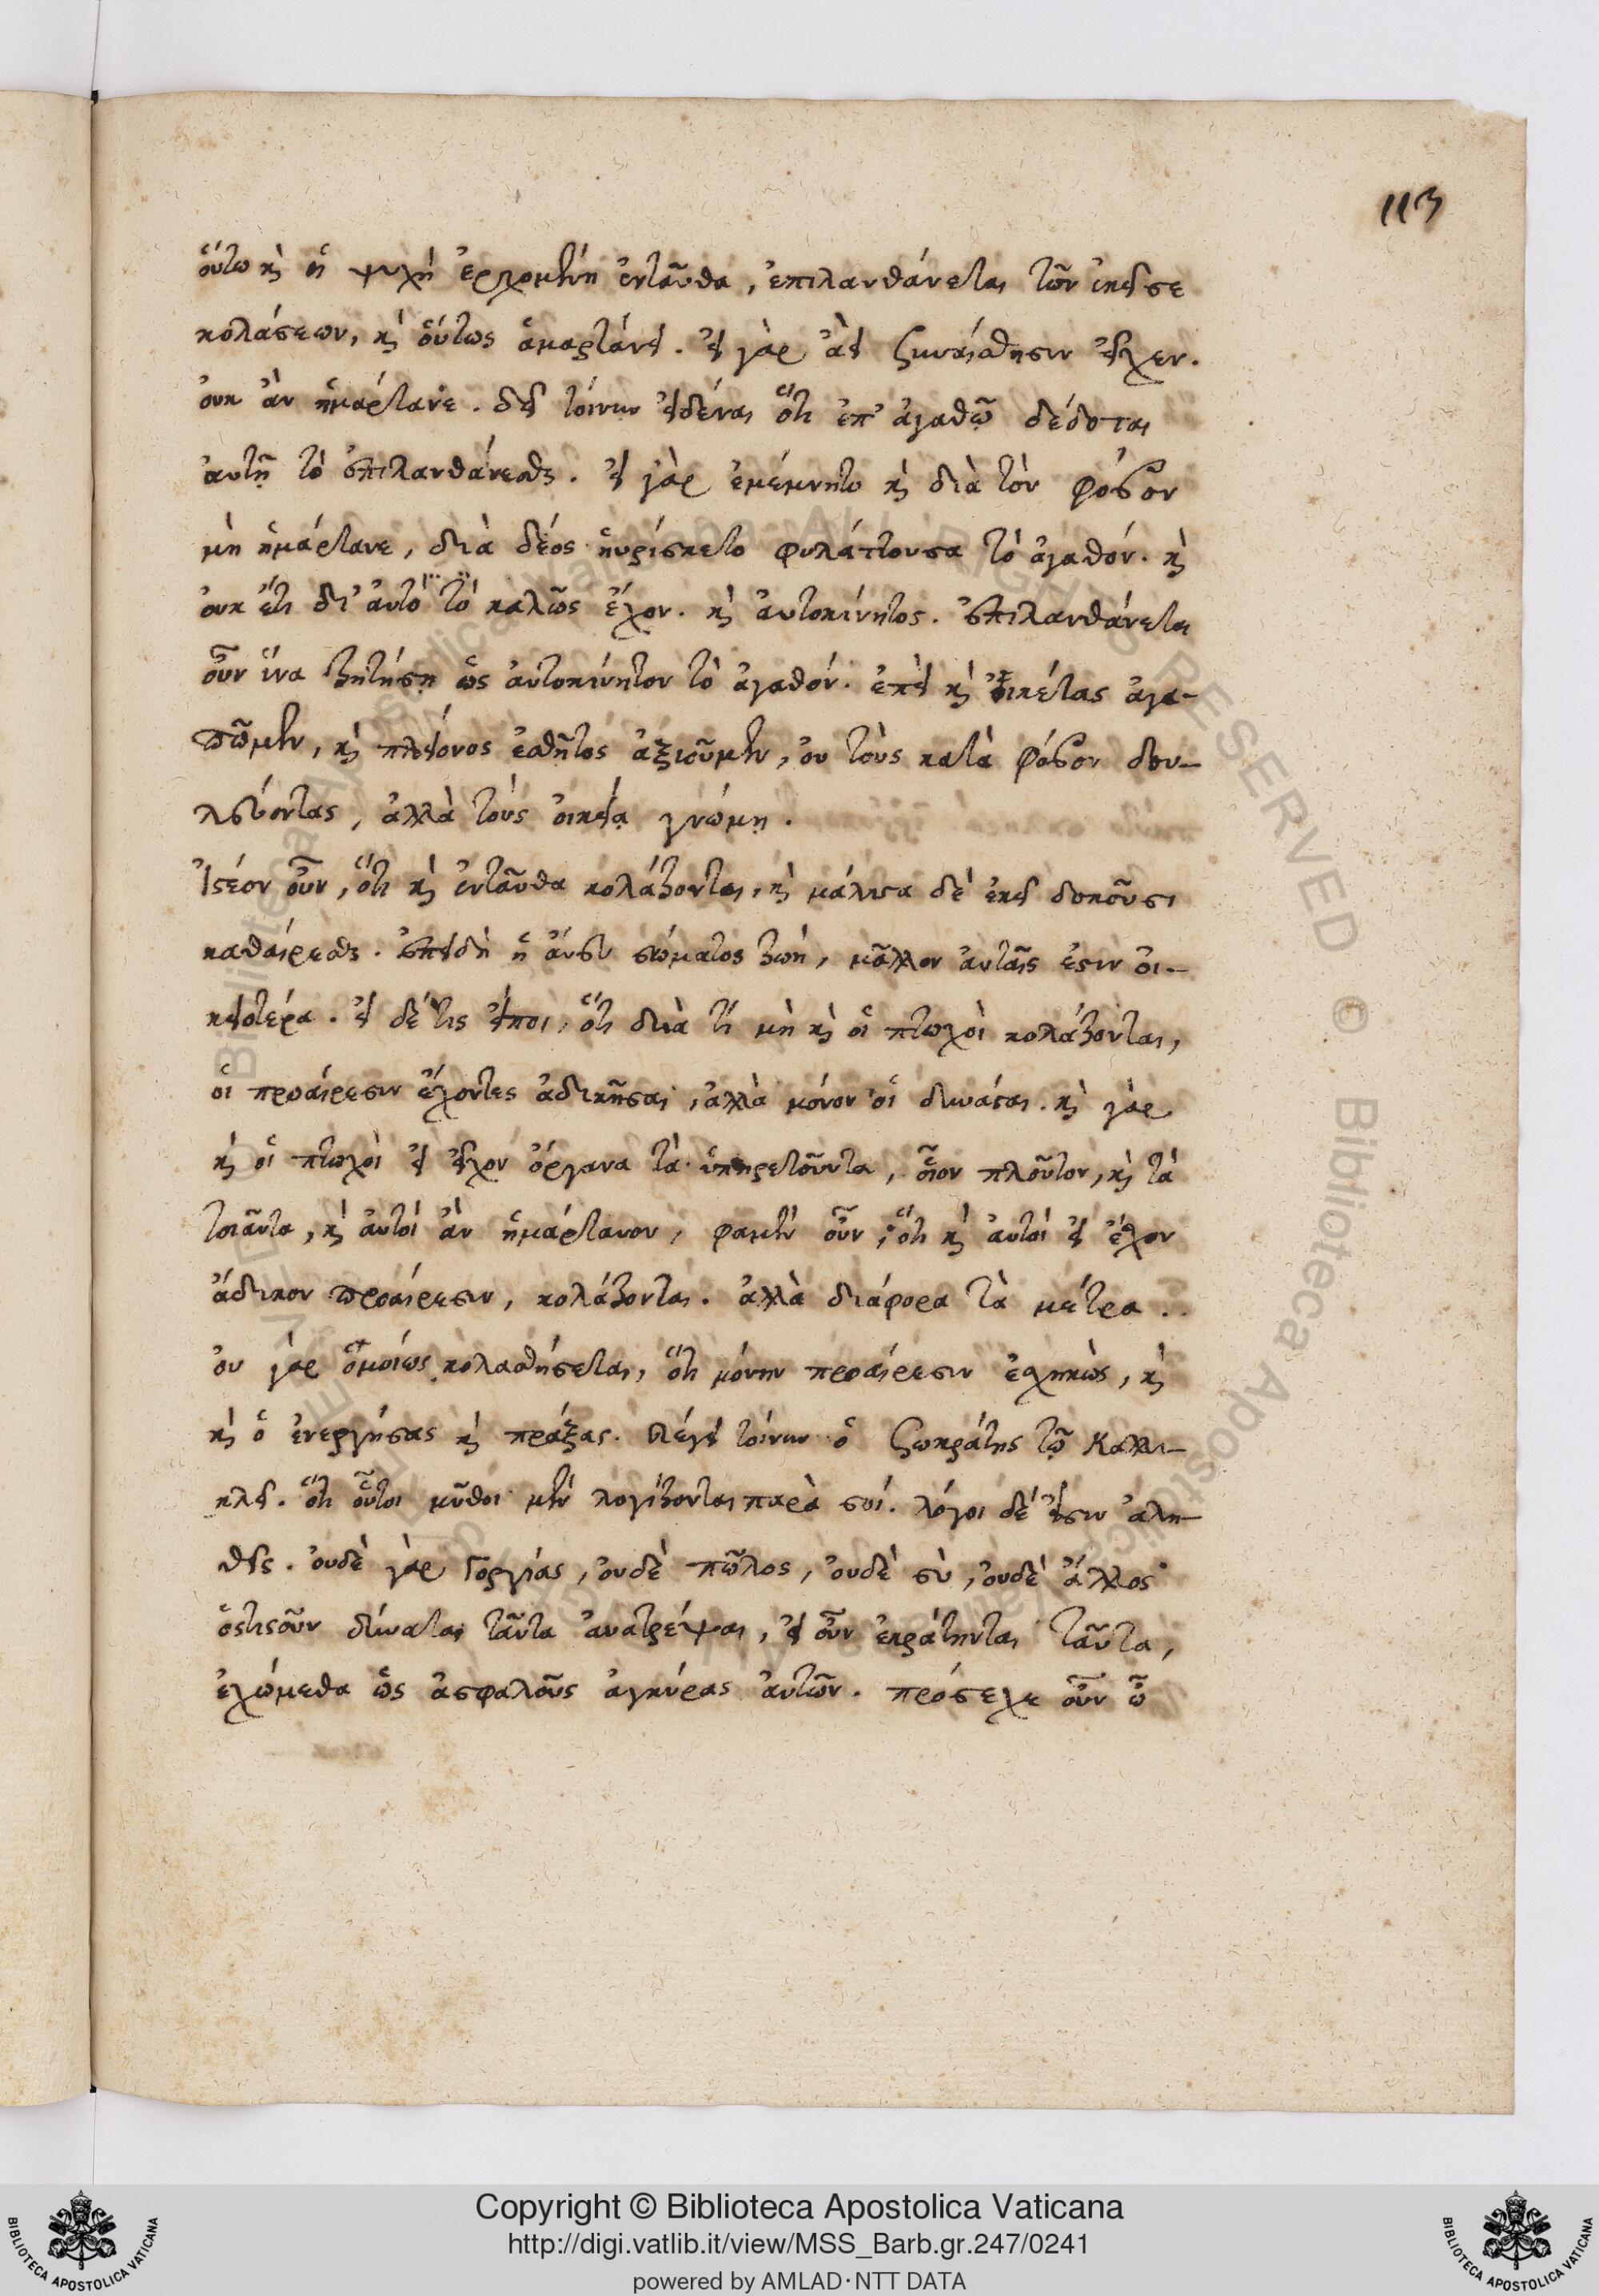 113
οὕτω κὶ ἡ ψυχὴ ἐρχομένη ἐνταῦθα, ἐπιλανθάνεται τῶν ἐκεῖσε
κολάσεων, κὶ οὕτως ἁμαρτάνει. εἰ γὰρ ἀεὶ συναίσθησιν εἶχεν.
οὐκ ἂν ἡμάρτανε. δεῖ τοίνυν εἰδέναι ὅτι ἐπ' ἀγαθῷ δέδοται
αὐτῇ τὸ ἐπιλανθάνεσθαι. εἰ γὰρ ἐμέμνητο κὶ διὰ τὸν φόβον
μὴ ἡμάρτανε, διὰ δέος ηὑρίσκετο φυλάττουσα τὸ ἀγαθόν. κὶ
οὐκ ἔτι δι' αὐτὸ τὸ καλῶς ἔχον. κὶ αὐτοκίνητος. ἐπιλανθάνεται
οὖν ἵνα ζητήσῃ ὡς αὐτοκίνητον τὸ ἀγαθόν. ἐπεὶ κὶ οἰκέτας ἀγα-
πῶμεν, κὶ πλείονος ἐσθῆτος ἀξιοῦμεν, οὐ τοὺς κατὰ φόβον δου-
λεύοντας, ἀλλὰ τοὺς οἰκείᾳ γνώμῃ.
Ἰστέον οὖν, ὅτι κὶ ἐνταῦθα κολάζονται, κὶ μάλιστα δὲ ἐκεῖ δοκοῦσι
καθαίρεσθαι. ἐπειδὴ ἡ ἄνευ σώματος ζωὴ, μᾶλλον αὐταῖς ἐστιν οἰ-
κειοτέρα. εἰ δέ τις εἴποι, ὅτι διὰ τί μὴ κὶ οἱ πτωχοὶ κολάζονται,
οἱ προαίρεσιν ἔχοντες ἀδικῆσαι, ἀλλὰ μόνον οἱ δυνάσται. κὶ γὰρ
κὶ οἱ πτωχοὶ εἰ εἶχον ὄργανα τὰ ὑπηρετοῦντα, οἷον πλοῦτον, κὶ τὰ
τοιαῦτα, κὶ αὐτοὶ ἂν ἡμάρτανον, φαμὲν οὖν, ὅτι κὶ αὐτοὶ εἰ ἔχον
ἄδικον προαίρεσιν, κολάζονται. ἀλλὰ διάφορα τὰ μέτρα..
οὐ γὰρ ὁμοίως κολασθήσεται, ὅτι μόνην προαίρεσιν ἐσχηκὼς, κὶ
κὶ ὁ ἐνεργήσας κὶ πράξας. λέγει τοίνυν ὁ Σωκράτης τῷ Καλλι-
κλεῖ. ὅτι οὗτοι μῦθοι μὲν λογίζονται παρὰ σοί. λόγοι δέ εἰσιν ἀλη-
θεῖς. οὐδὲ γὰρ Γοργίας, οὐδὲ πῶλος, οὐδὲ σὺ, οὐδὲ ἄλλος
ὁστισοῦν δύναται ταῦτα ἀνατρέψαι, εἰ οὖν ἐκράτηνται ταῦτα,
ἐχώμεθα ὡς ἀσφαλοῦς ἀγκύρας αὐτῶν. πρόσεχε οὖν ὦ
Copyright © Biblioteca Apostolica Vaticana
http://digi.vatlib.it/view/MSS_Barb.gr.247/0241
powered by AMLAD·NTT DATA